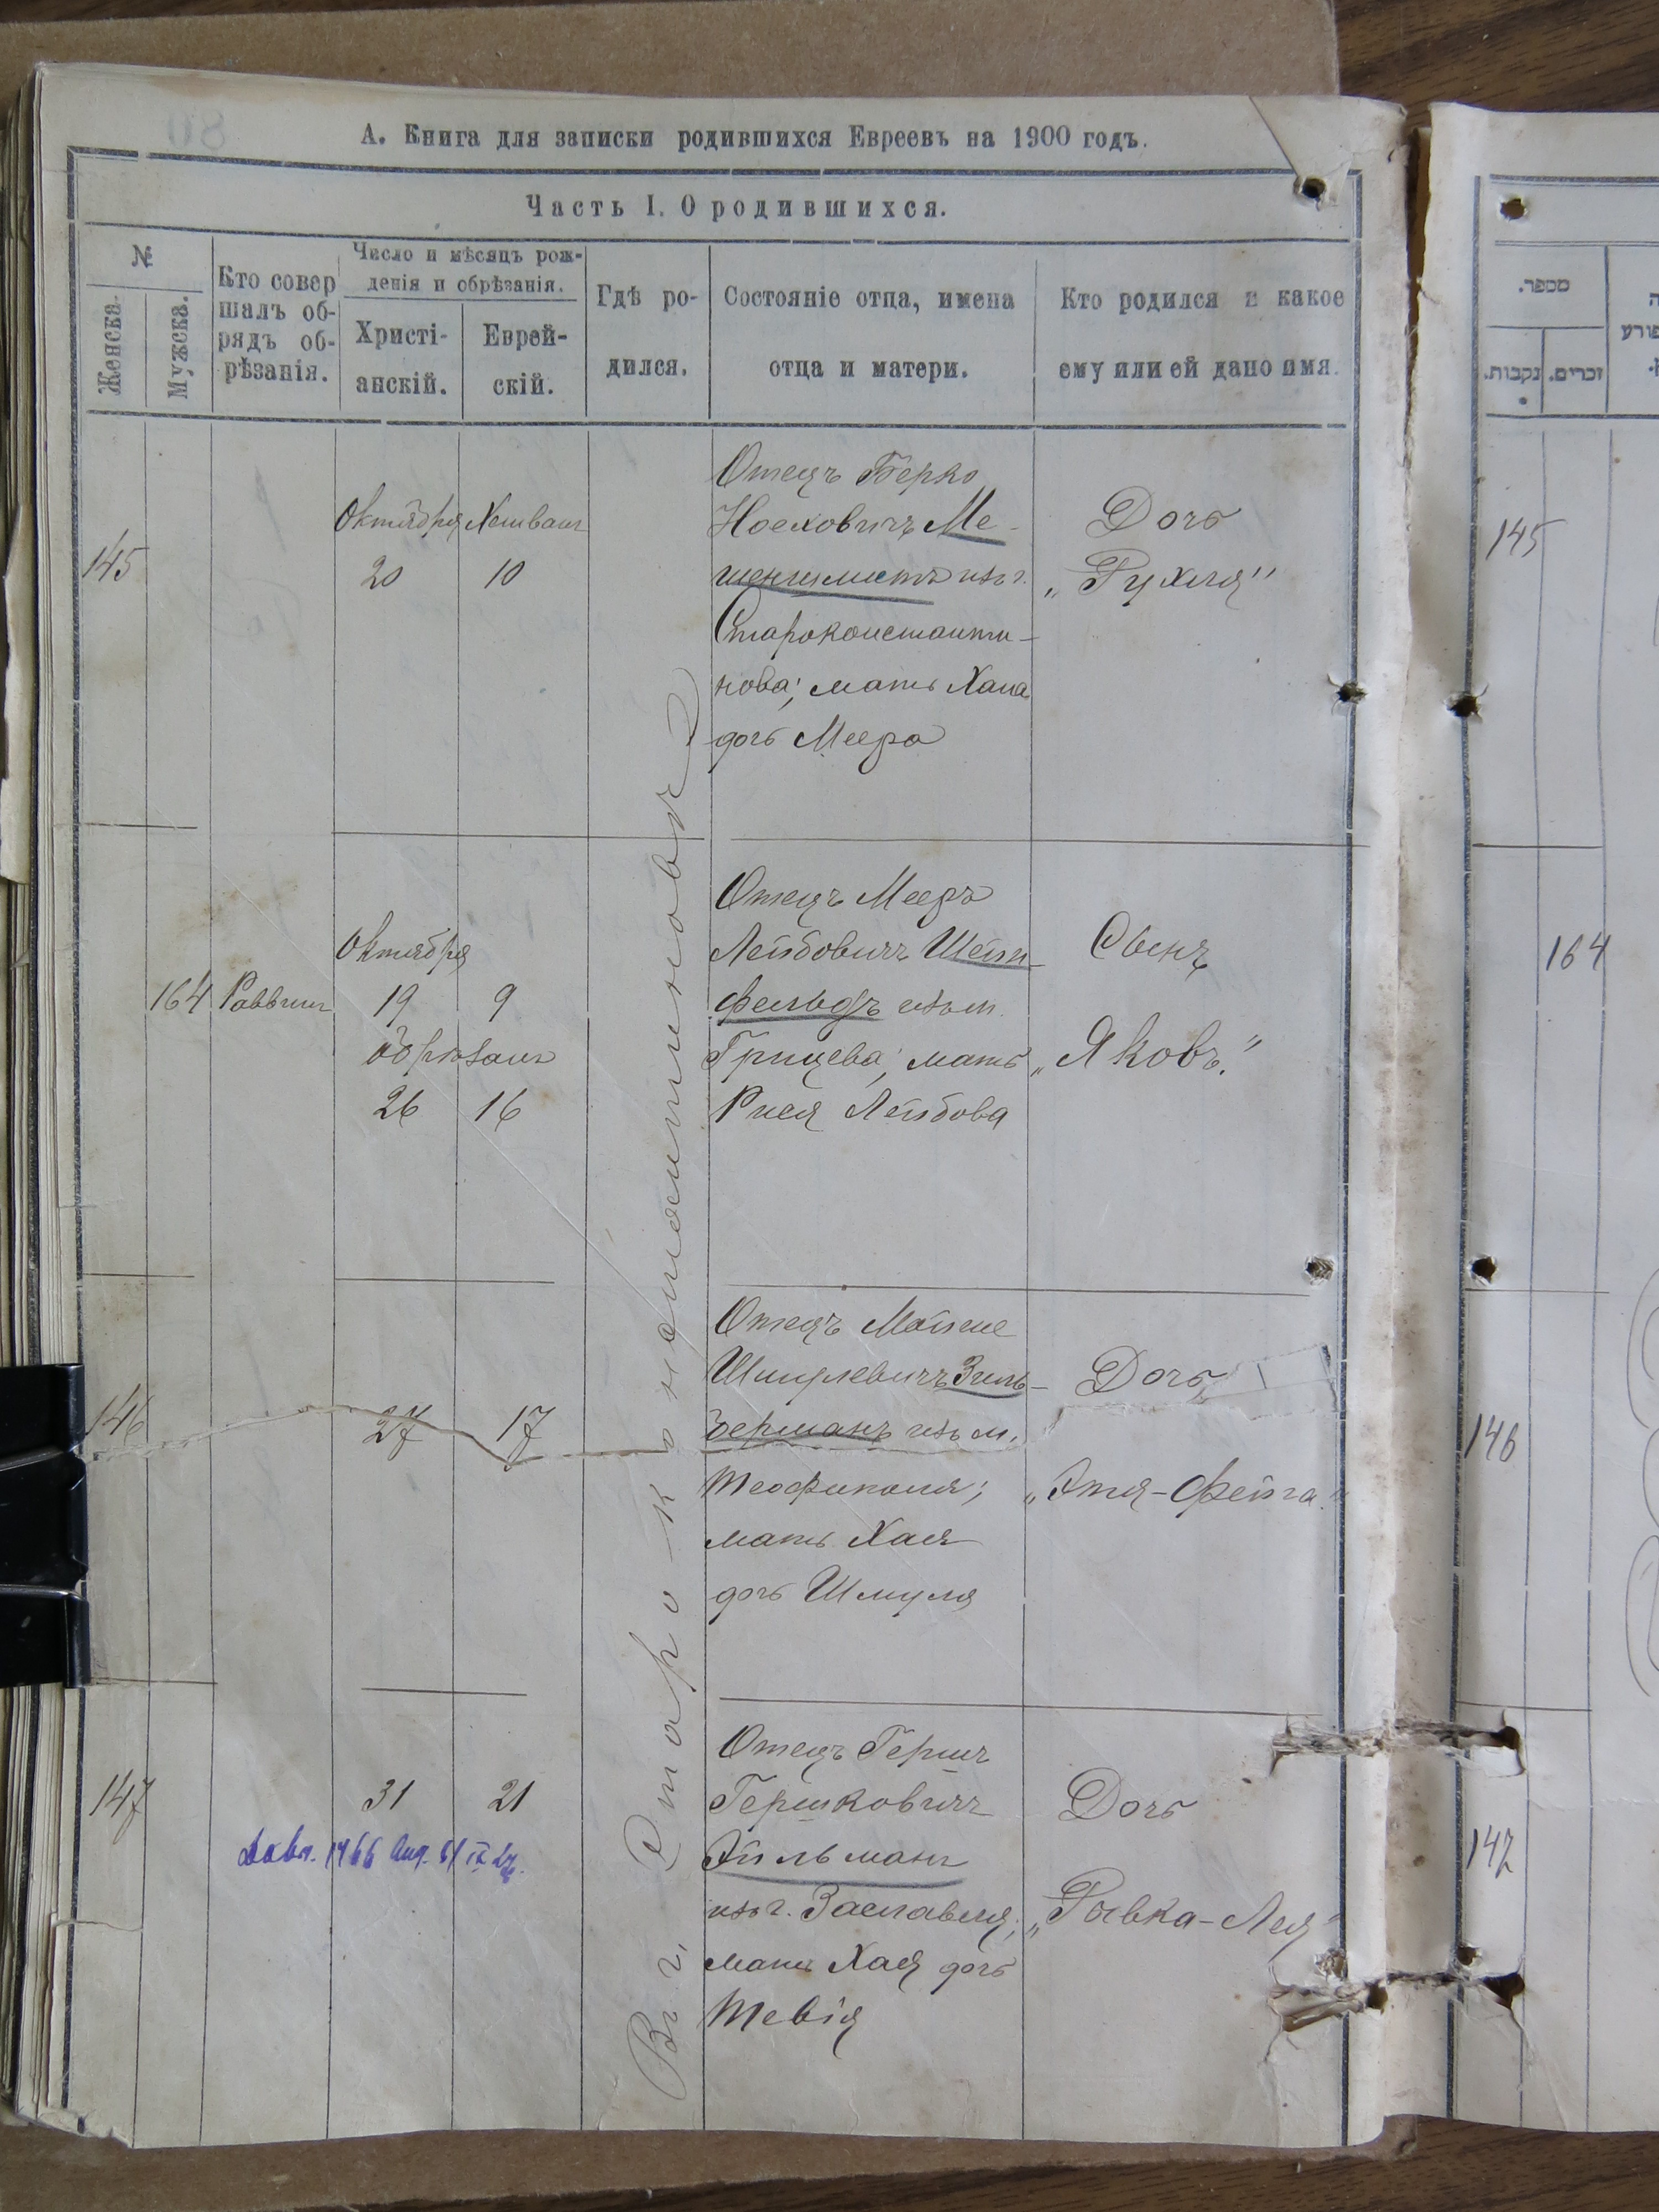 А. Книга для записки родившихся Евреевъ на 1900 годъ.
Часть I. О родившихся.
№
Женска.
Мужска.
Кто совер
шалъ об-
рядъ об-
рѣзанія.
Число и мѣсяцъ рож-
денія и обрѣзанія.
Христі-
анскій.
Еврей-
скій.
Гдѣ ро-
дился.
Состояніе отца, имена
отца и матери.
Кто родился и какое
ему или ей дано имя.
145
Октября
20
Хешвана
10
Отецъ Берко
Ноеховичъ Ме-
изъ г.
Староконстанти-
нова; мать Хана
дочь Меера
Дочь
„Рухля"
164
Раввинъ
Октября
19 9
обрѣзанъ
26 16
Отецъ Мееръ
Лейбовичъ Шейн-
фельдъ изъ м.
Грицева; мать
Рися Лейбова
Сынъ
„Яковъ."
146
27 17
Отецъ Мойше
Шмулевичъ Зиль-
берманъ изъ м.
Теофиполя;
мать Хая
дочь Шмуля
Дочь
„Этя-Фейга."
147
31 21
Отецъ Гершъ
Гершковичъ
Эйльманъ
изъ г. Заславля;
мать Хая дочь
Тевія
Дочь
„Рывка-Лея"
Въ г. Старо-константиновѣ
מספר.
נקבות.
זכרים.
145
164
146
147